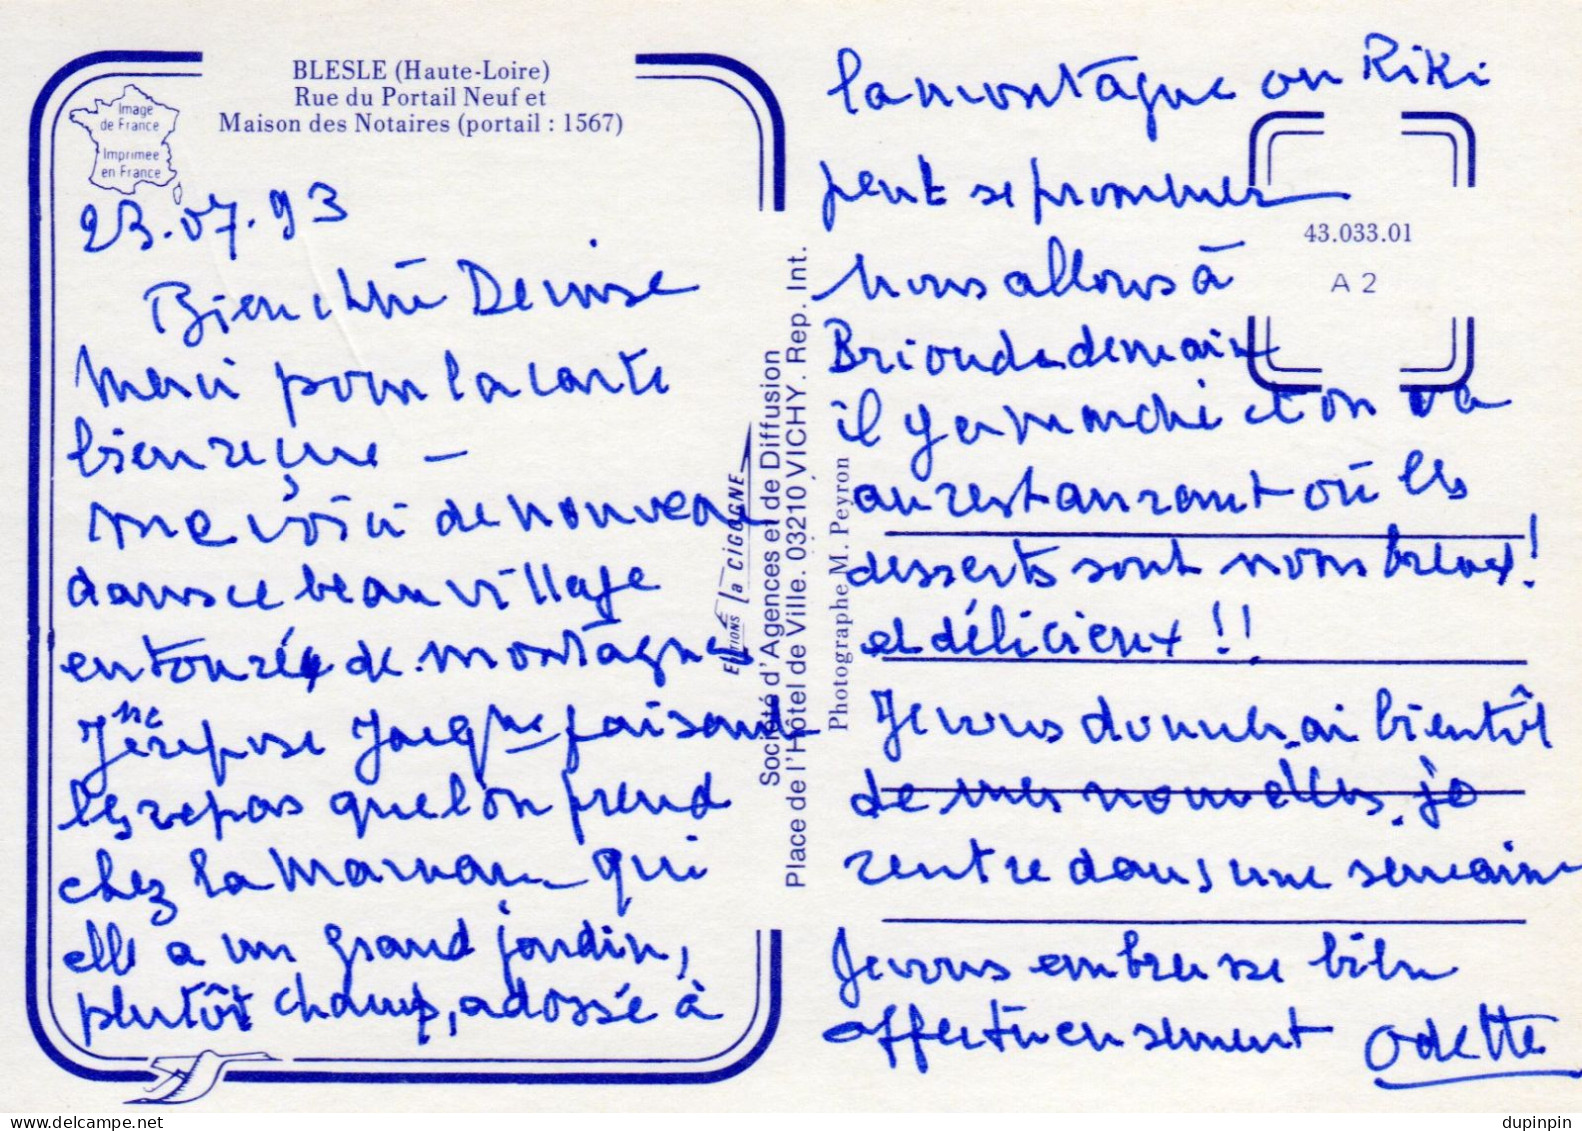 BLESLE (Haute-Loire)
Rue du Portail Neuf et
Maison des Notaires (portail : 1567)
Image
de France
Imprimée
en France
23.07.93
Bien chère Denise
Merci pour la carte
bien reçue -
me voici de nouveau
dans ce beau village
entourée de montagnes
Je me repose Jacqne faisant
les repas que l'on prend
chez la maman qui
elle a un grand jardin,
plutôt champ, adossé à
EDITIONS la CIGOGNE
Société d'Agences et de Diffusion
Place de l'Hôtel de Ville. 03210 VICHY. Rep. Int.
Photographe M. Peyron
la montagne ou Riki
peut se promener
43.033.01
A 2
Nous allons à
Brioude demain
il y a marché et on va
au restaurant où les
desserts sont nombreux!
et délicieux !!
Je vous donnerai bientôt
de mes nouvelles, je
rentre dans une semaine
Je vous embrasse bien
affectueusement Odette
delcampe.net
dupinpin